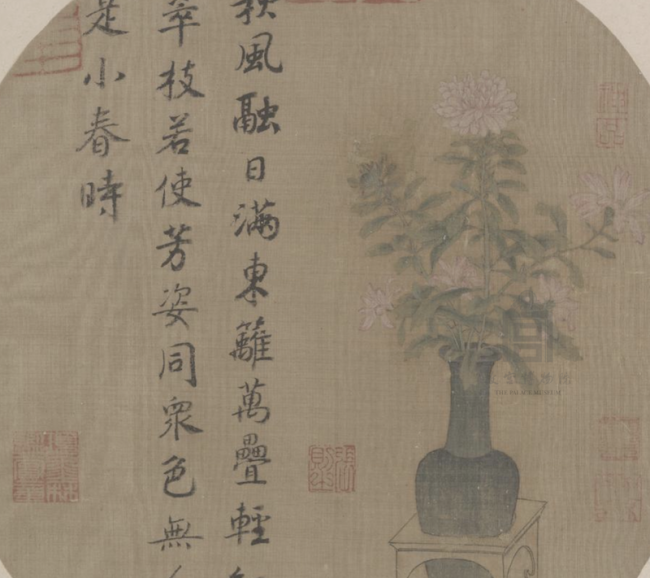 秋風融日滿東籬萬疊輕
萃枝若使芳姿同衆色無
是小春時
THE PALACE MUSEUM